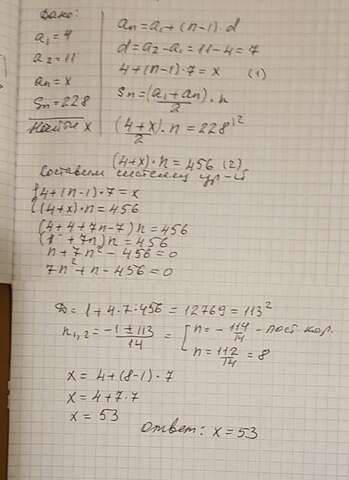 Дано:
a₁ = 4
a₂ = 11
aₙ = x
Sₙ = 228
Найти x
aₙ = a₁ + (n-1)·d
d = a₂ - a₁ = 11 - 4 = 7
4 + (n-1)·7 = x (1)
Sₙ = (a₁ + aₙ)/2 · n
(4+x)/2 · n = 228 |²
(4+x)·n = 456 (2)
Составим систему ур-й
{4 + (n-1)·7 = x
{(4+x)·n = 456
(4+4+7n-7)n = 456
(1 + 7n)n = 456
n + 7n² - 456 = 0
7n² + n - 456 = 0
D = 1 + 4·7·456 = 12769 = 113²
n₁,₂ = (-1 ± 113)/14 = [n = -114/14 - пост. кор.
n = 112/14 = 8
x = 4 + (8-1)·7
x = 4 + 7·7
x = 53
Ответ: x = 53